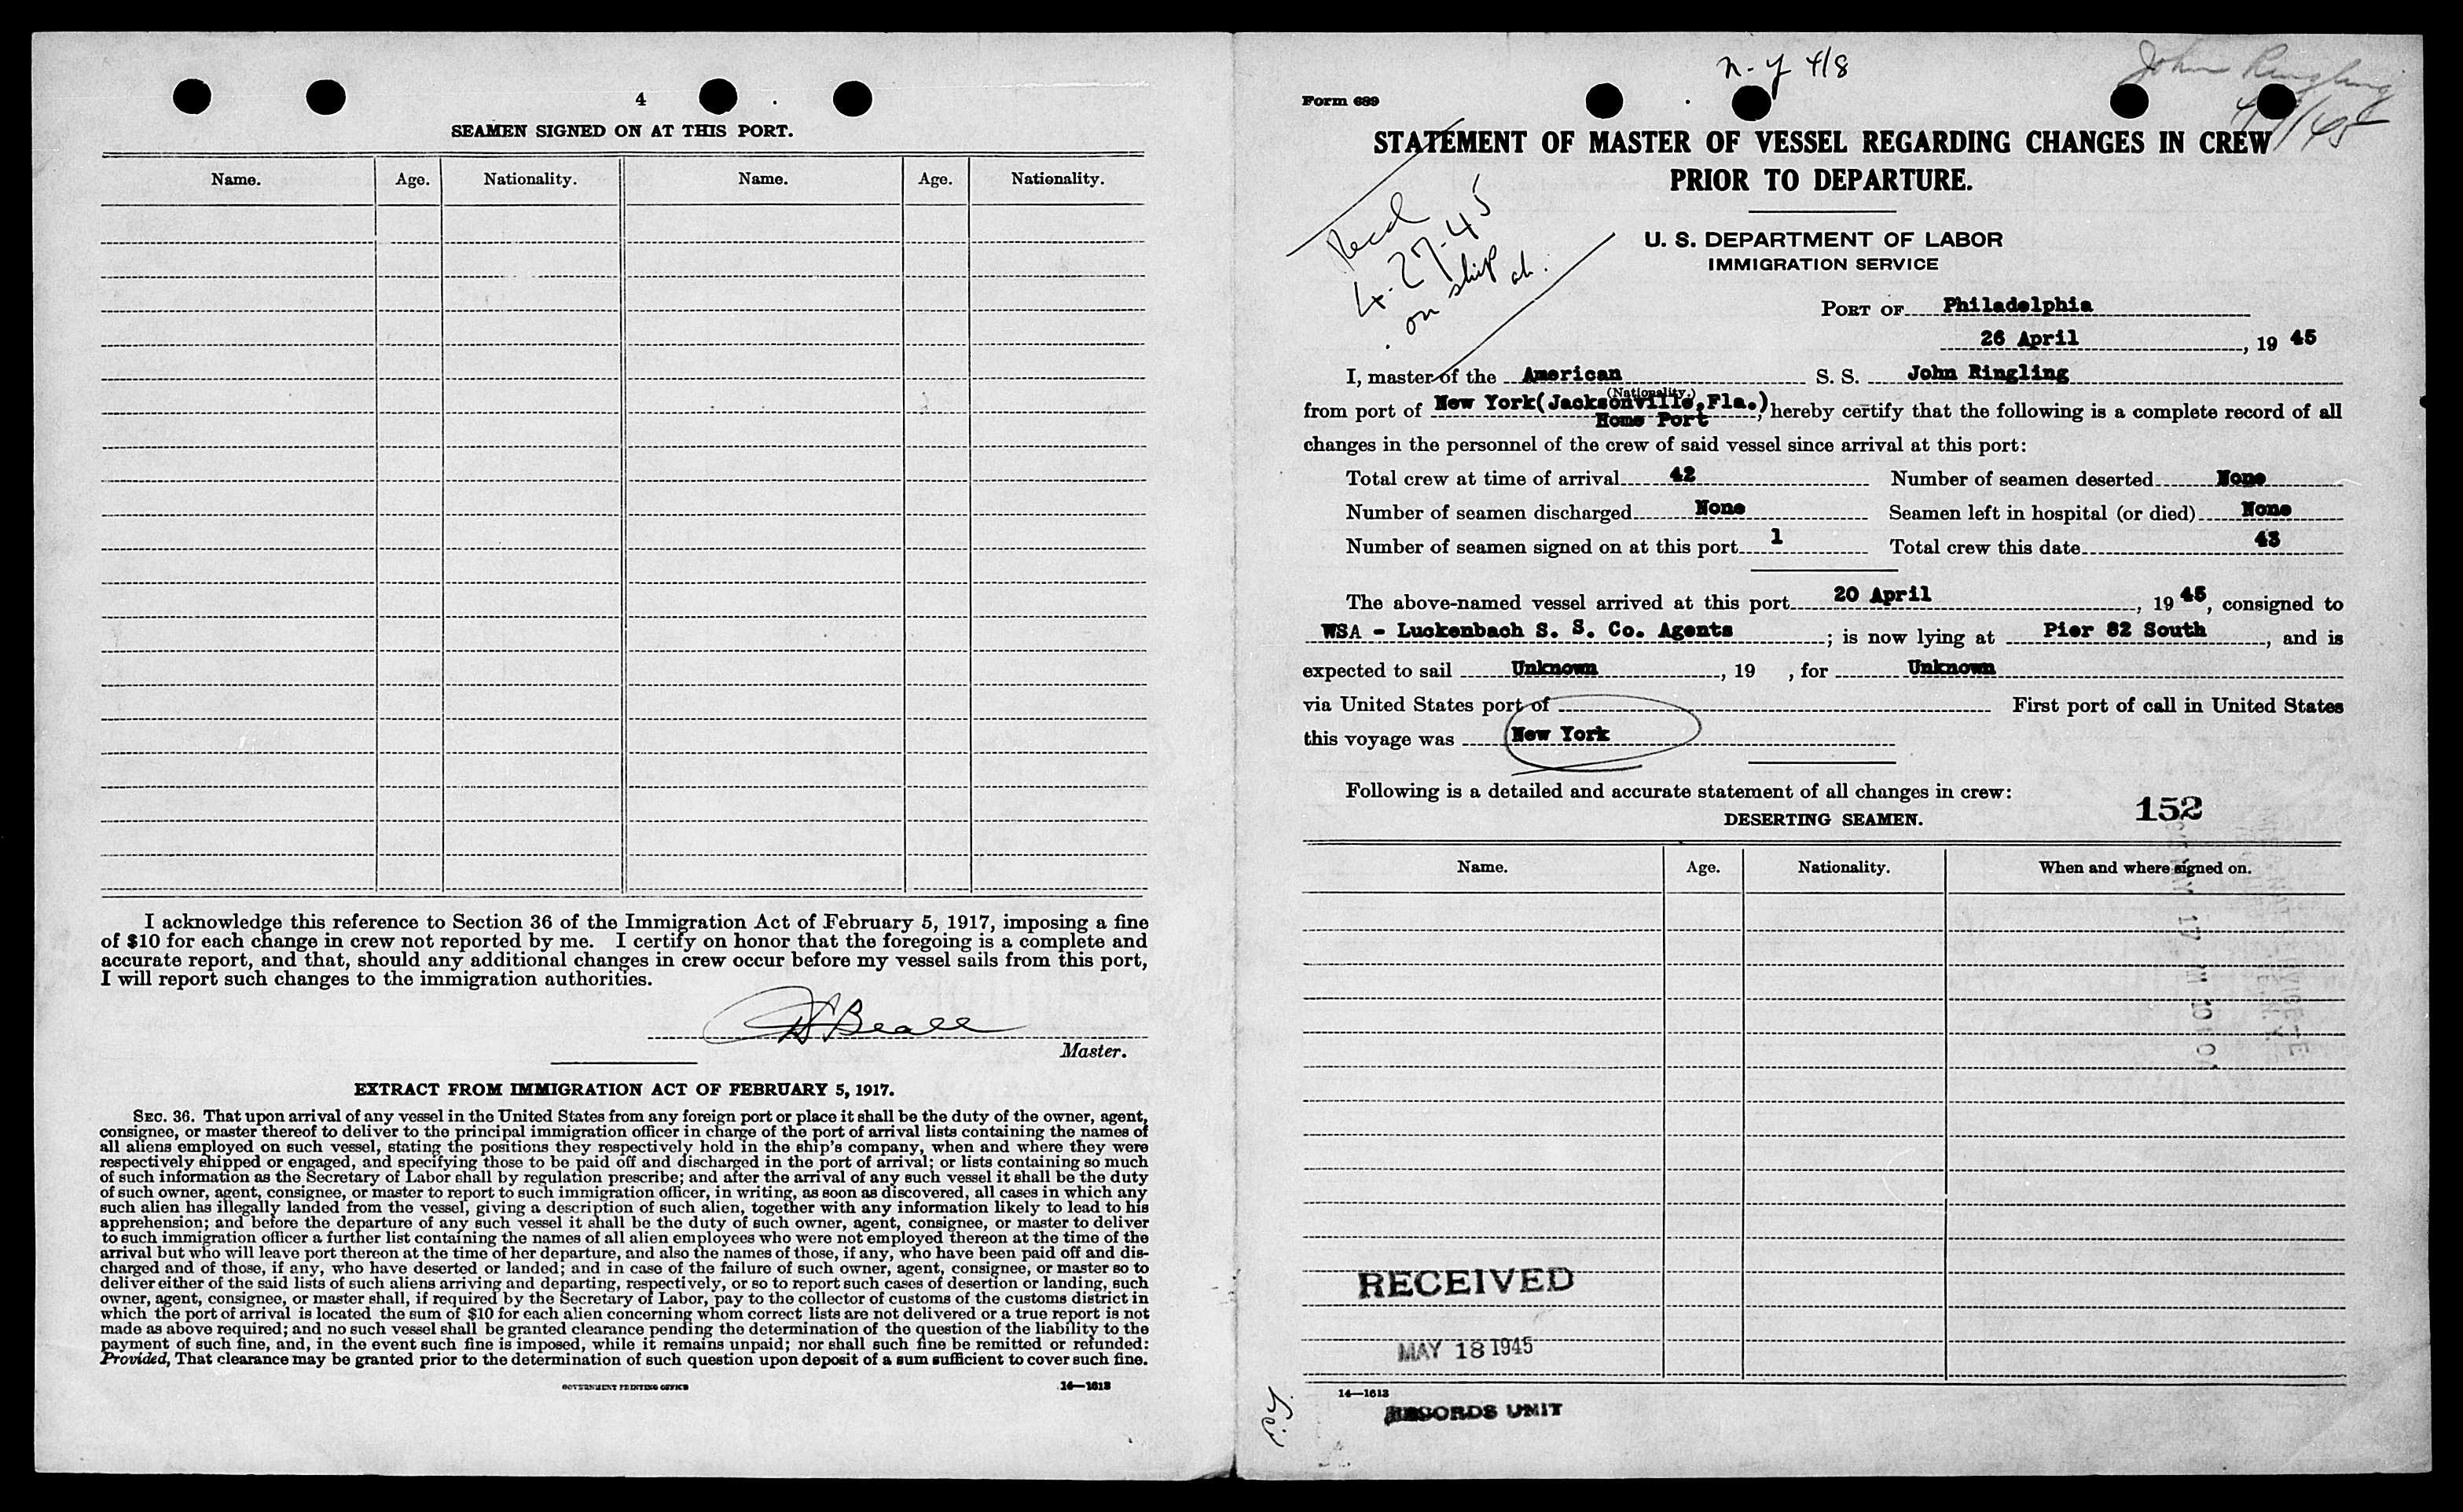 4
SEAMEN SIGNED ON AT THIS PORT.
Name. Age. Nationality. Name. Age. Nationality.
I acknowledge this reference to Section 36 of the Immigration Act of February 5, 1917, imposing a fine
of $10 for each change in crew not reported by me. I certify on honor that the foregoing is a complete and
accurate report, and that, should any additional changes in crew occur before my vessel sails from this port,
I will report such changes to the immigration authorities.
Beall
Master.
EXTRACT FROM IMMIGRATION ACT OF FEBRUARY 5, 1917.
SEC. 36. That upon arrival of any vessel in the United States from any foreign port or place it shall be the duty of the owner, agent,
consignee, or master thereof to deliver to the principal immigration officer in charge of the port of arrival lists containing the names of
all aliens employed on such vessel, stating the positions they respectively hold in the ship's company, when and where they were
respectively shipped or engaged, and specifying those to be paid off and discharged in the port of arrival; or lists containing so much
of such information as the Secretary of Labor shall by regulation prescribe; and after the arrival of any such vessel it shall be the duty
of such owner, agent, consignee, or master to report to such immigration officer, in writing, as soon as discovered, all cases in which any
such alien has illegally landed from the vessel, giving a description of such alien, together with any information likely to lead to his
apprehension; and before the departure of any such vessel it shall be the duty of such owner, agent, consignee, or master to deliver
to such immigration officer a further list containing the names of all alien employees who were not employed thereon at the time of the
arrival but who will leave port thereon at the time of her departure, and also the names of those, if any, who have been paid off and dis-
charged and of those, if any, who have deserted or landed; and in case of the failure of such owner, agent, consignee, or master so to
deliver either of the said lists of such aliens arriving and departing, respectively, or so to report such cases of desertion or landing, such
owner, agent, consignee, or master shall, if required by the Secretary of Labor, pay to the collector of customs of the customs district in
which the port of arrival is located the sum of $10 for each alien concerning whom correct lists are not delivered or a true report is not
made as above required; and no such vessel shall be granted clearance pending the determination of the question of the liability to the
payment of such fine, and, in the event such fine is imposed, while it remains unpaid; nor shall such fine be remitted or refunded:
Provided, That clearance may be granted prior to the determination of such question upon deposit of a sum sufficient to cover such fine.
GOVERNMENT PRINTING OFFICE 14—1613
N-Y 4/8
John Ringling
Form 689
STATEMENT OF MASTER OF VESSEL REGARDING CHANGES IN CREW
PRIOR TO DEPARTURE.
Recd
4-27-45
on ship
U. S. DEPARTMENT OF LABOR
IMMIGRATION SERVICE
PORT OF Philadelphia
26 April, 19 45
I, master of the American S. S. John Ringling
(Nationality.)
from port of New York(Jacksonville,Fla.), hereby certify that the following is a complete record of all
Home Port
changes in the personnel of the crew of said vessel since arrival at this port:
Total crew at time of arrival 42 Number of seamen deserted None
Number of seamen discharged None Seamen left in hospital (or died) None
Number of seamen signed on at this port 1 Total crew this date 43
The above-named vessel arrived at this port 20 April, 19 45, consigned to
WSA - Luckenbach S. S. Co. Agents; is now lying at Pier 82 South, and is
expected to sail Unknown, 19 , for Unknown
via United States port of First port of call in United States
this voyage was New York
Following is a detailed and accurate statement of all changes in crew:
152
DESERTING SEAMEN.
Name. Age. Nationality. When and where signed on.
RECEIVED
MAY 18 1945
14—1613
RECORDS UNIT